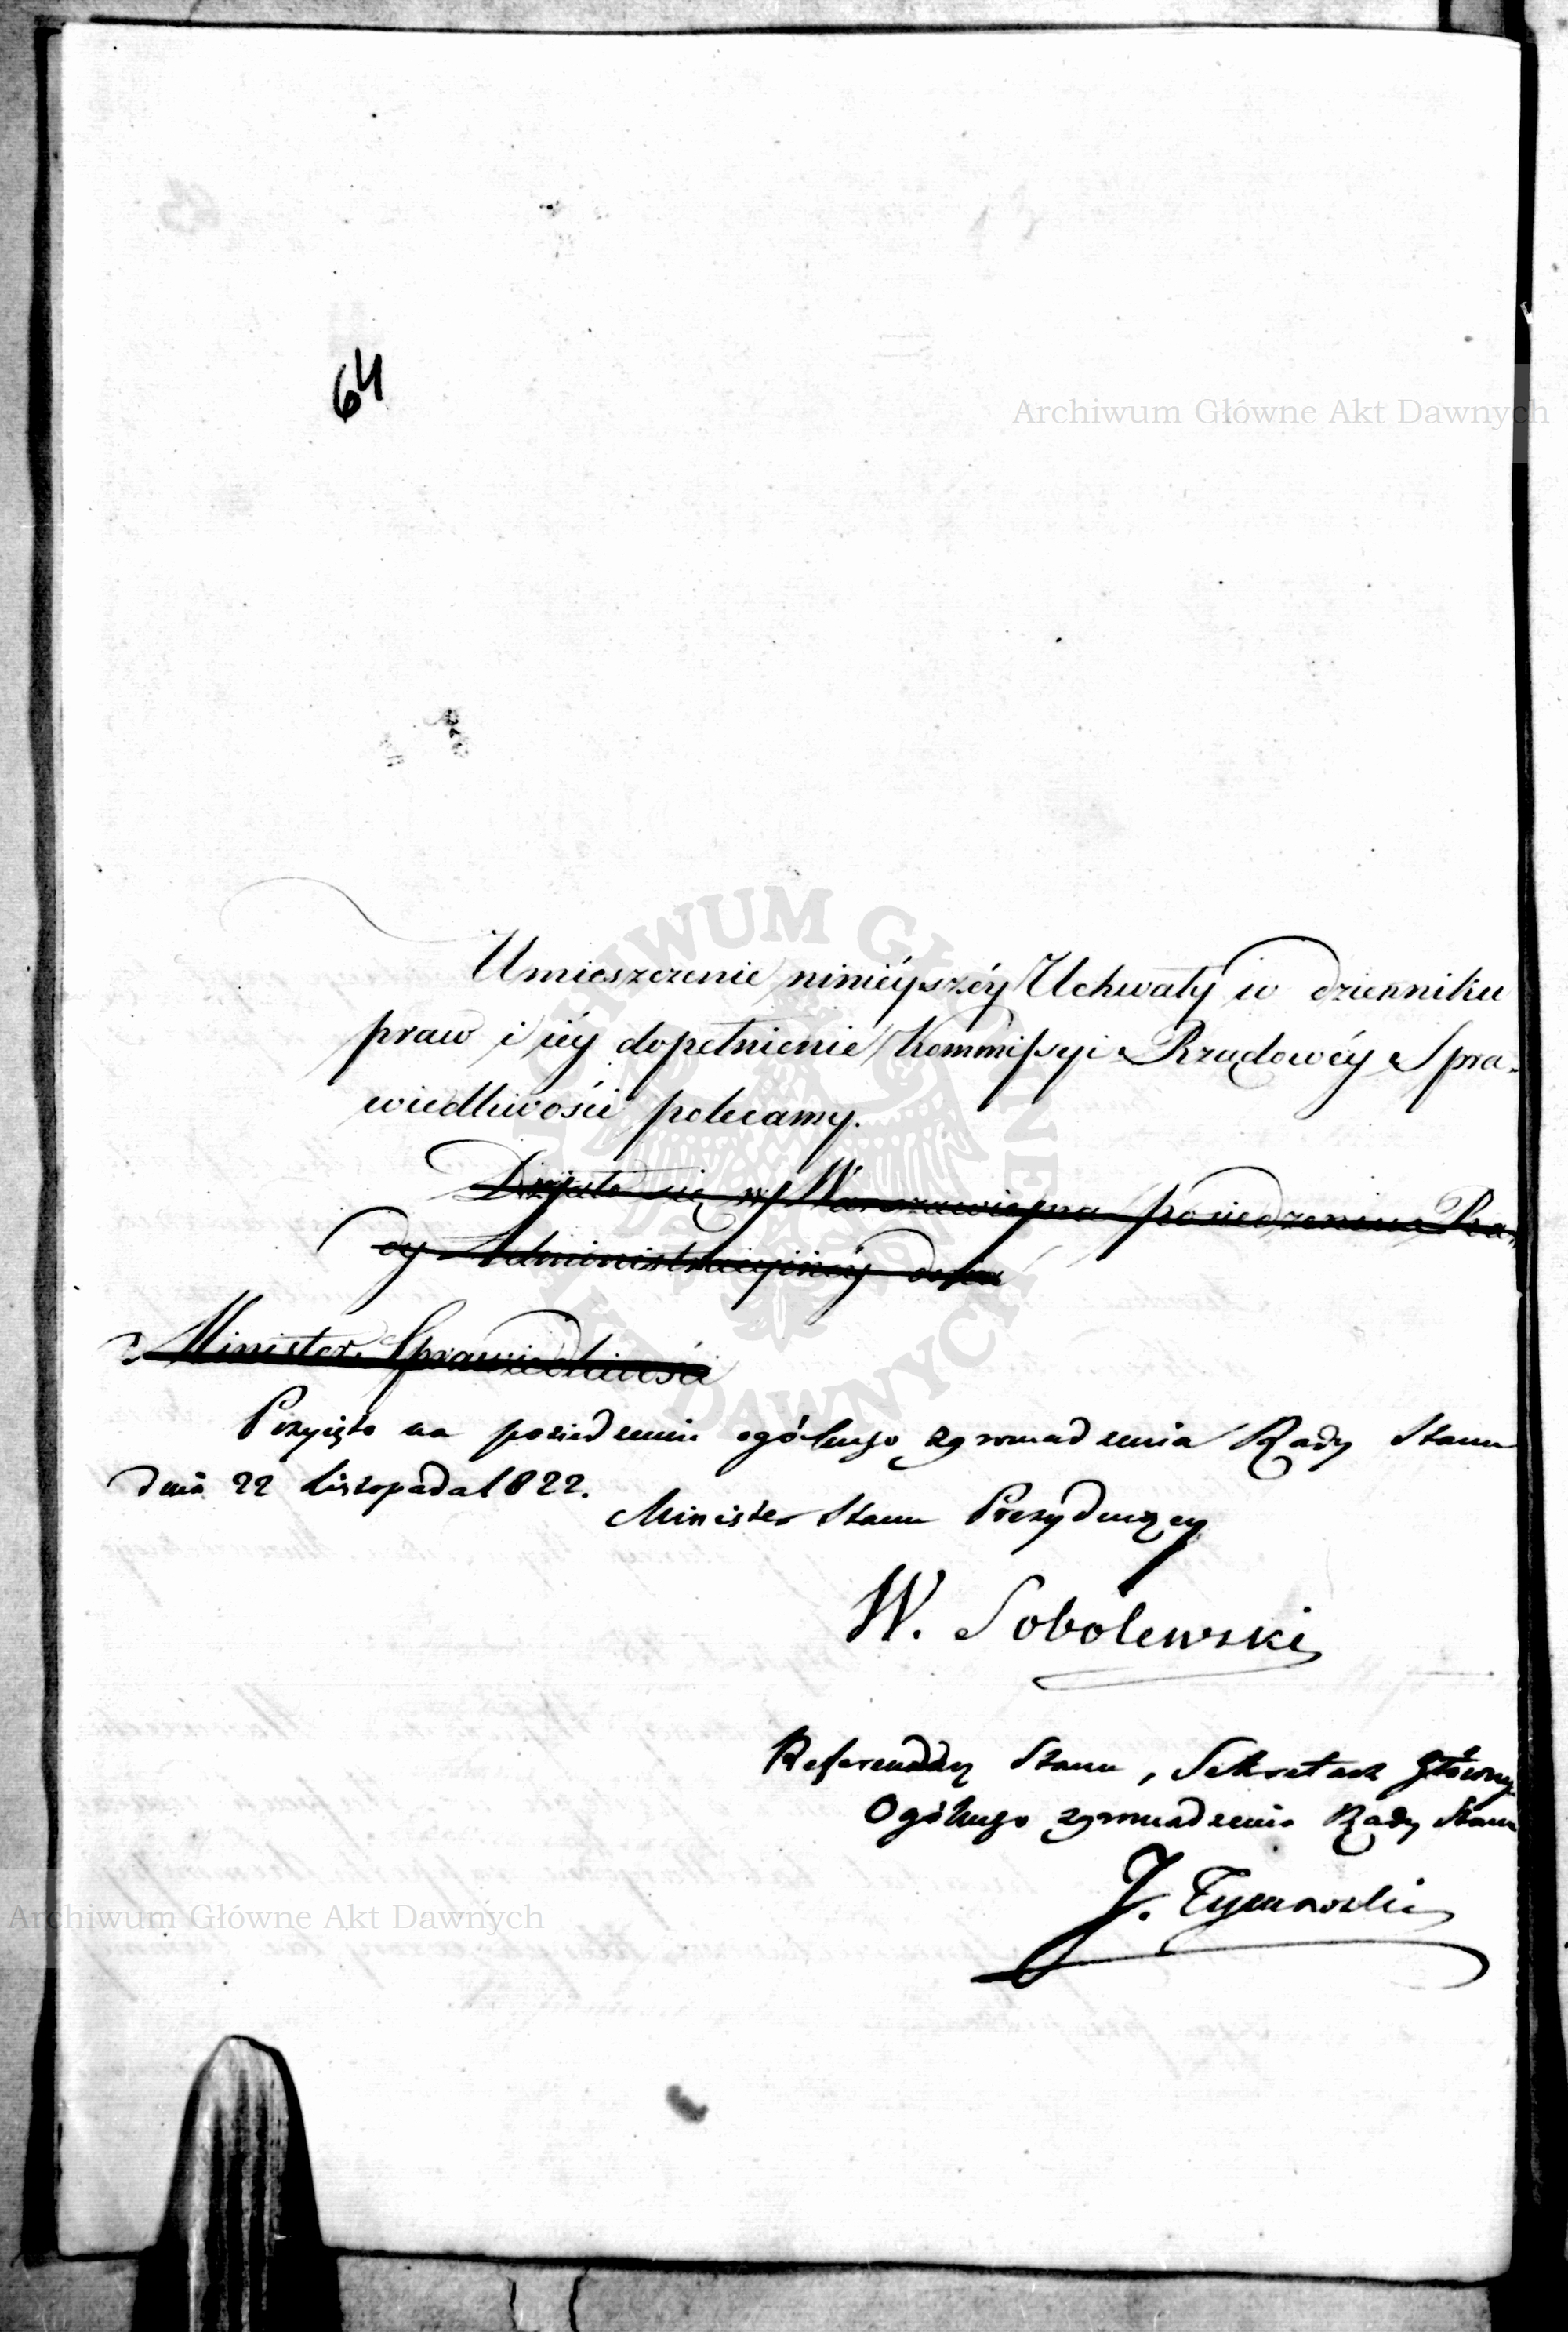 64
Archiwum Główne Akt Dawnych
Umieszczenie ninieyszéy Uchwały w dzienniku
praw i iéy dopełnienie Kommissyi Rządowéy Spra-
wiedliwości polecamy.
Działo się w Warszawie na posiedzeniu Ra-
dy Administracyinéy dnia
Minister Sprawiedliwości
Przyięto na posiedzeniu ogólnego zgromadzenia Rady Stanu
dnia 22 Listopada 1822.
Minister Stanu Prezyduiący
W. Sobolewski
Referendarz Stanu, Sekretarz Główny
Ogólnego zgromadzenia Rady Stanu
J. Tymowski
Archiwum Główne Akt Dawnych